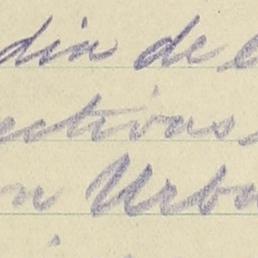 dia de l
ectivas
on Urba